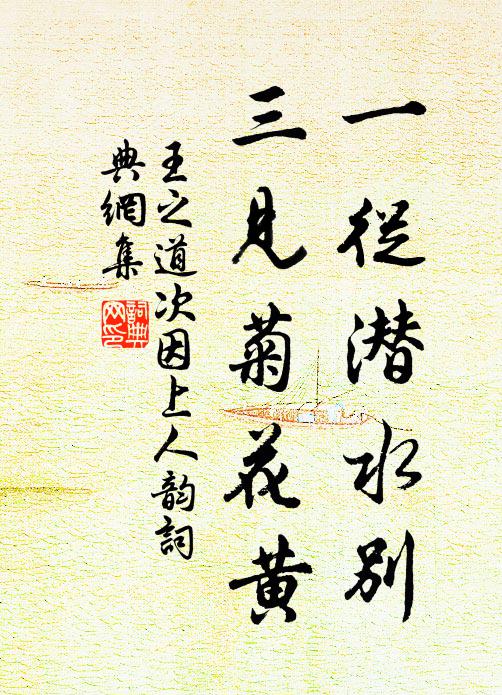 一從潜水別
三見菊花黄
王之道次因上人韵詞
典網集
詞典網印